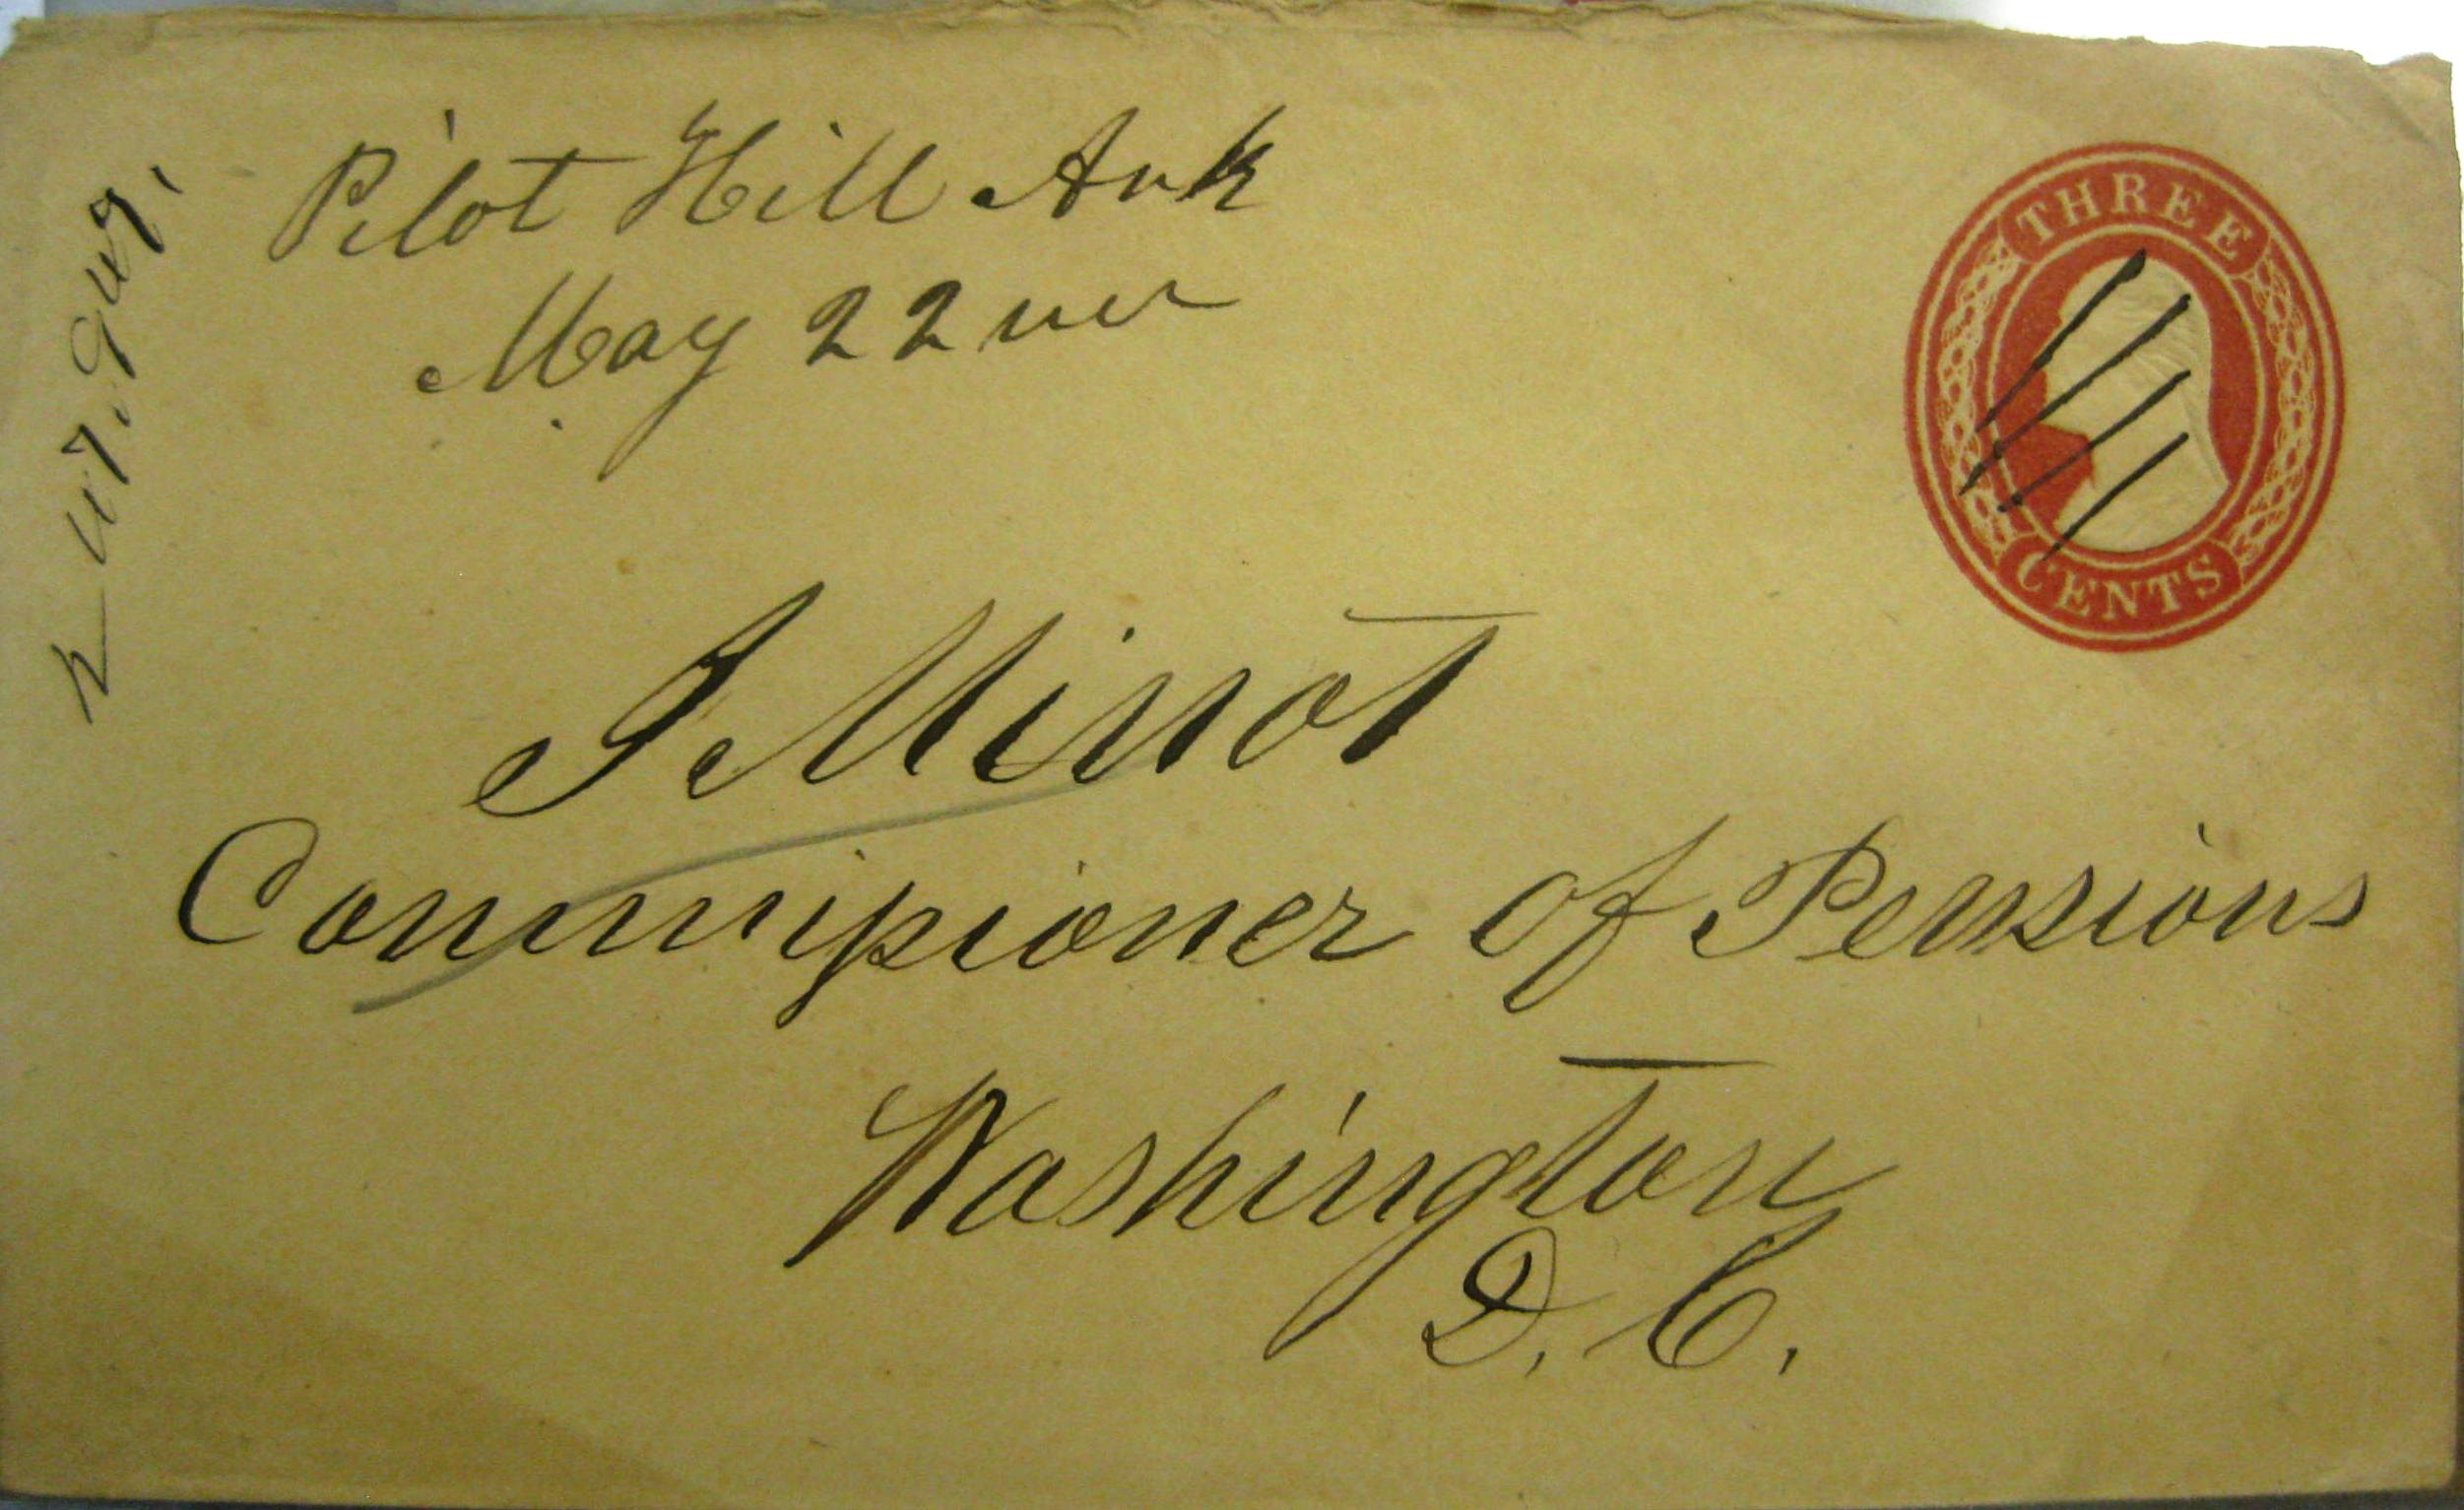 Pilot Hill Ark
May 22
THREE
CENTS
J Minot
Commissioner of Pensions
Washington
D. C.